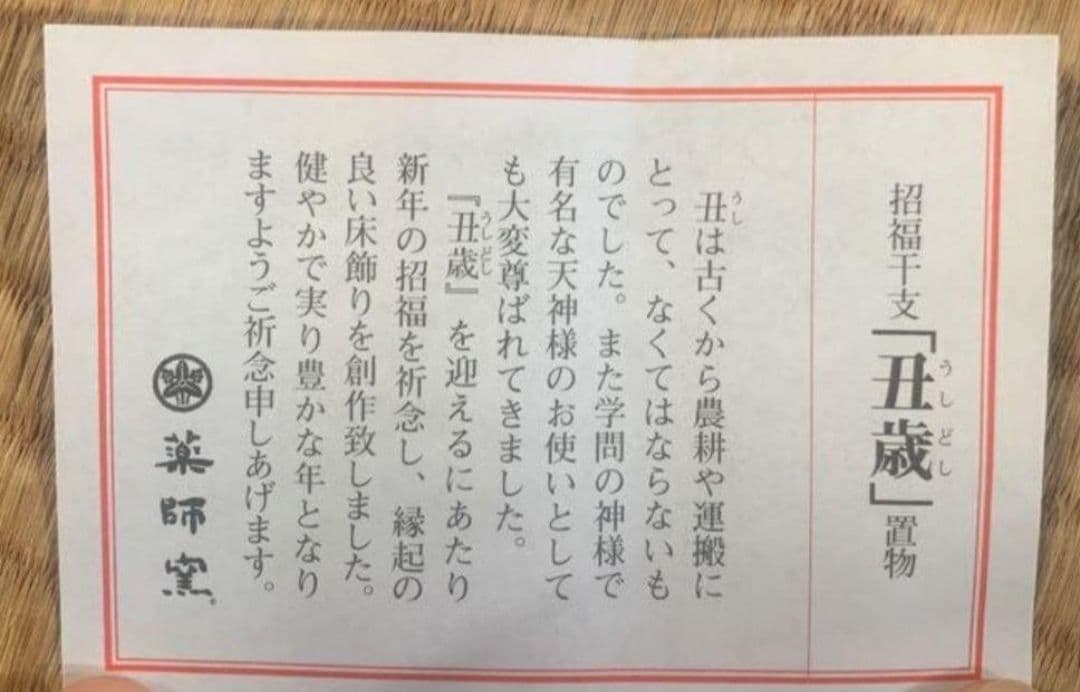 招福干支「丑歳」置物
うしどし
丑は古くから農耕や運搬に
うし
とって、なくてはならないも
のでした。また学問の神様で
有名な天神様のお使いとして
も大変尊ばれてきました。
『丑歳』を迎えるにあたり
うしどし
新年の招福を祈念し、縁起の
良い床飾りを創作致しました。
健やかで実り豊かな年となり
ますようご祈念申しあげます。
薬師窯